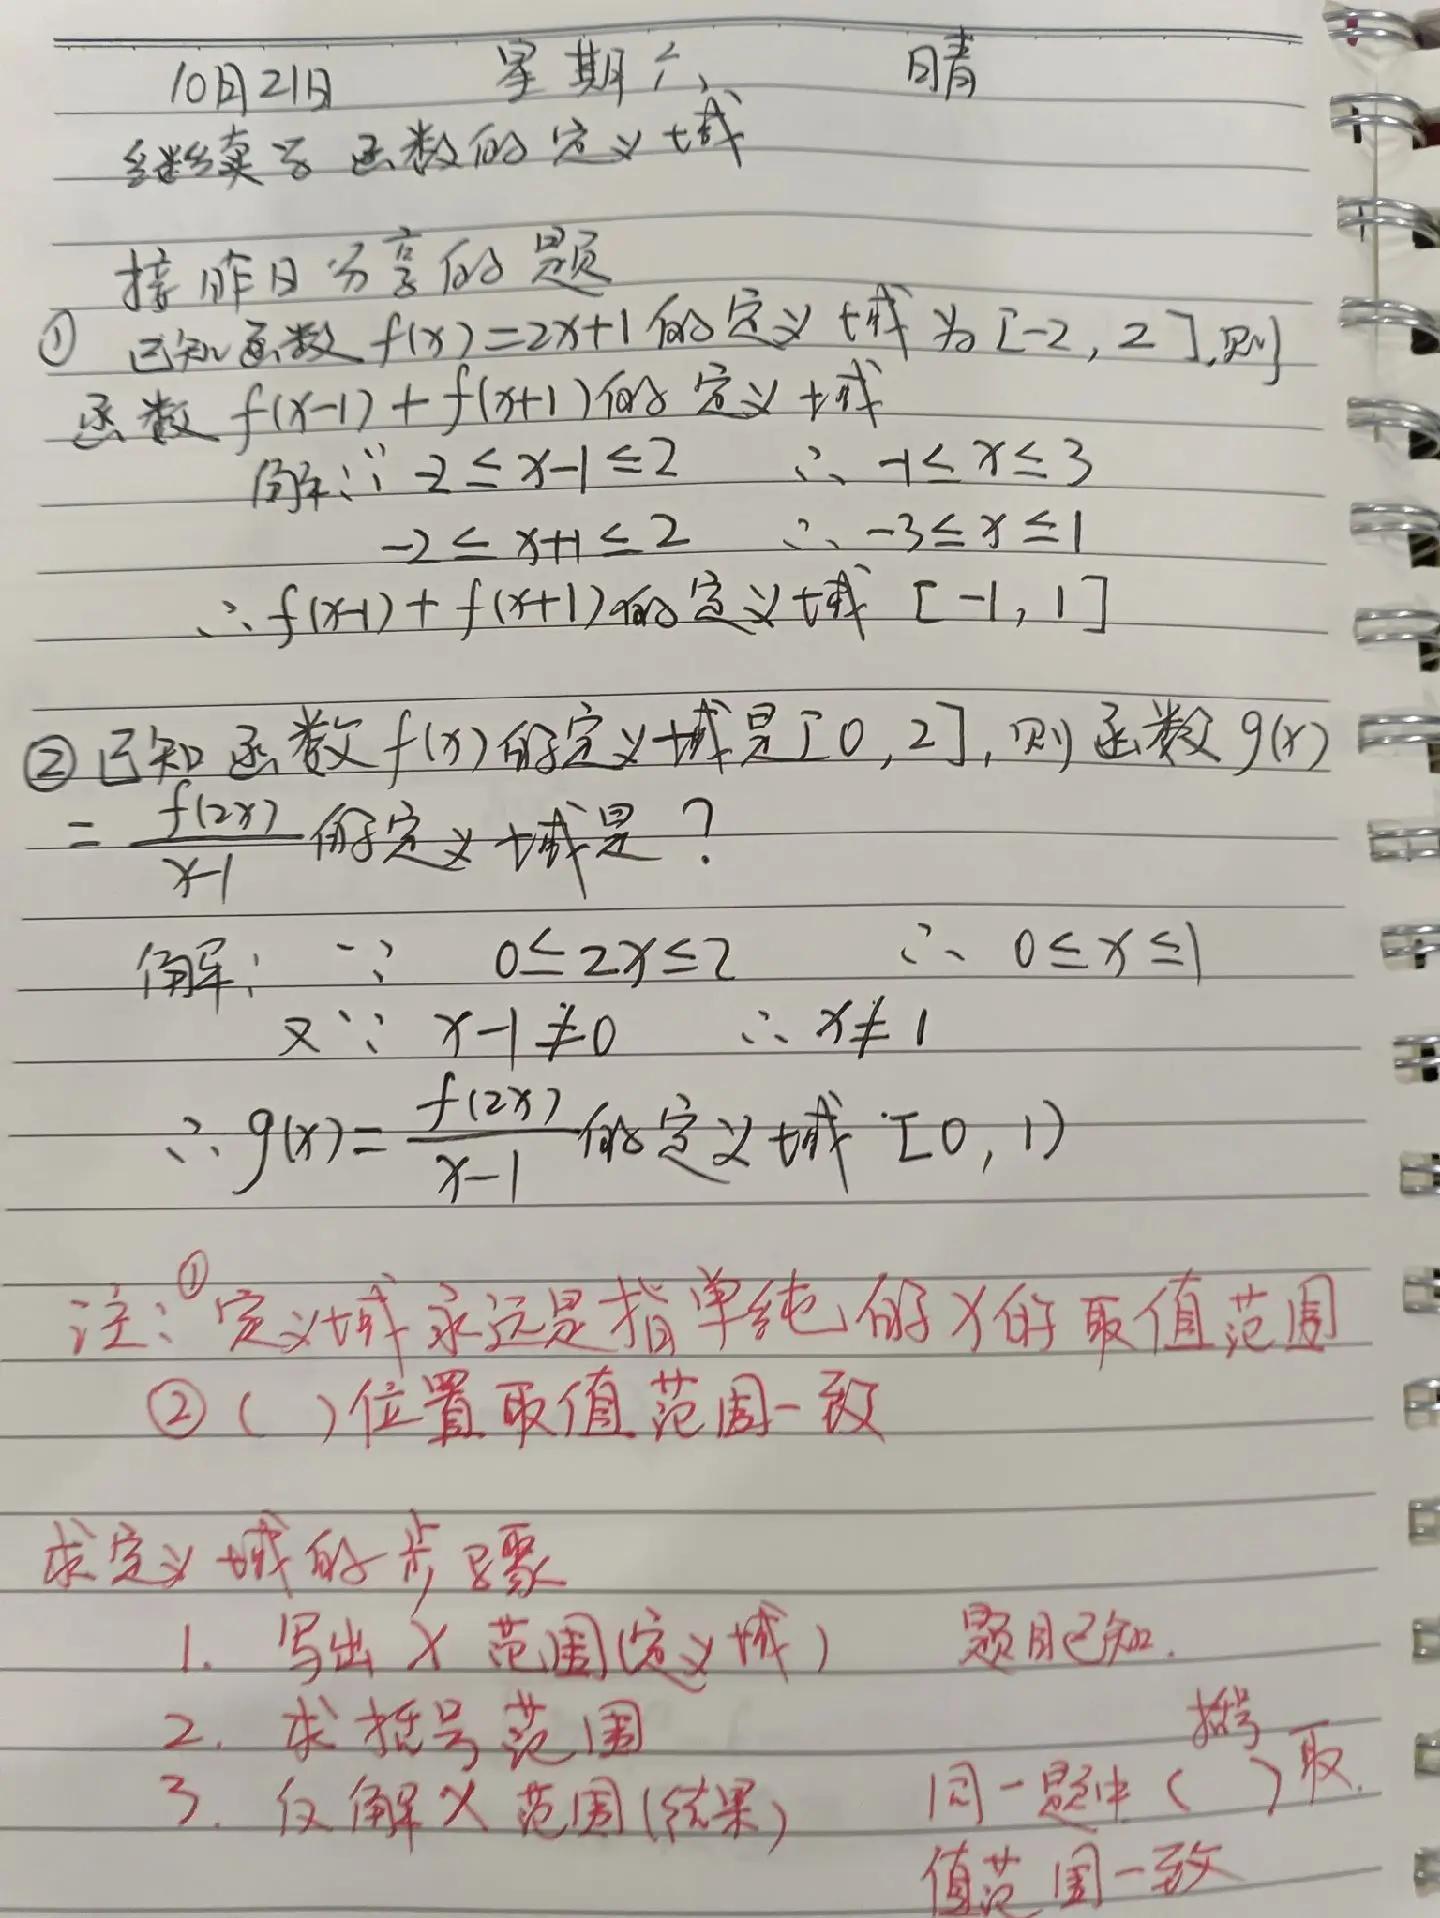 10月21日 星期六 晴
继续学函数的定义域
接昨日分享的题
① 已知函数 f(x)=2x+1的定义域为[-2,2],则
函数 f(x-1)+f(x+1)的定义域
解:∵ -2≤x-1≤2 ∴ -1≤x≤3
-2≤x+1≤2 ∴ -3≤x≤1
∴ f(x-1)+f(x+1)的定义域 [-1,1]
② 已知函数f(x)的定义域是[0,2],则函数g(x)
= f(2x)/(x-1) 的定义域是?
解: ∵ 0≤2x≤2 ∴ 0≤x≤1
又∵ x-1≠0 ∴ x≠1
∴ g(x)= f(2x)/(x-1) 的定义域 [0,1)
注:①定义域永远是指单纯的x的取值范围
②( )位置取值范围一致
求定义域的步骤
1. 写出x范围(定义域) 题目已知.
2. 求括号范围
括号
3. 仅解x范围(结果) 同一题中( )取
值范围一致